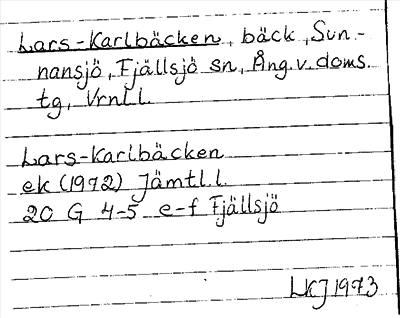 Lars-Karlbäcken, bäck, Sun-
nansjö, Fjällsjö sn, Ång.v.doms.
tg, Vrnl.l.
Lars-Karlbäcken
ek (1972) Jämtl.l.
20 G 4-5 e-f Fjällsjö
LKJ 1973